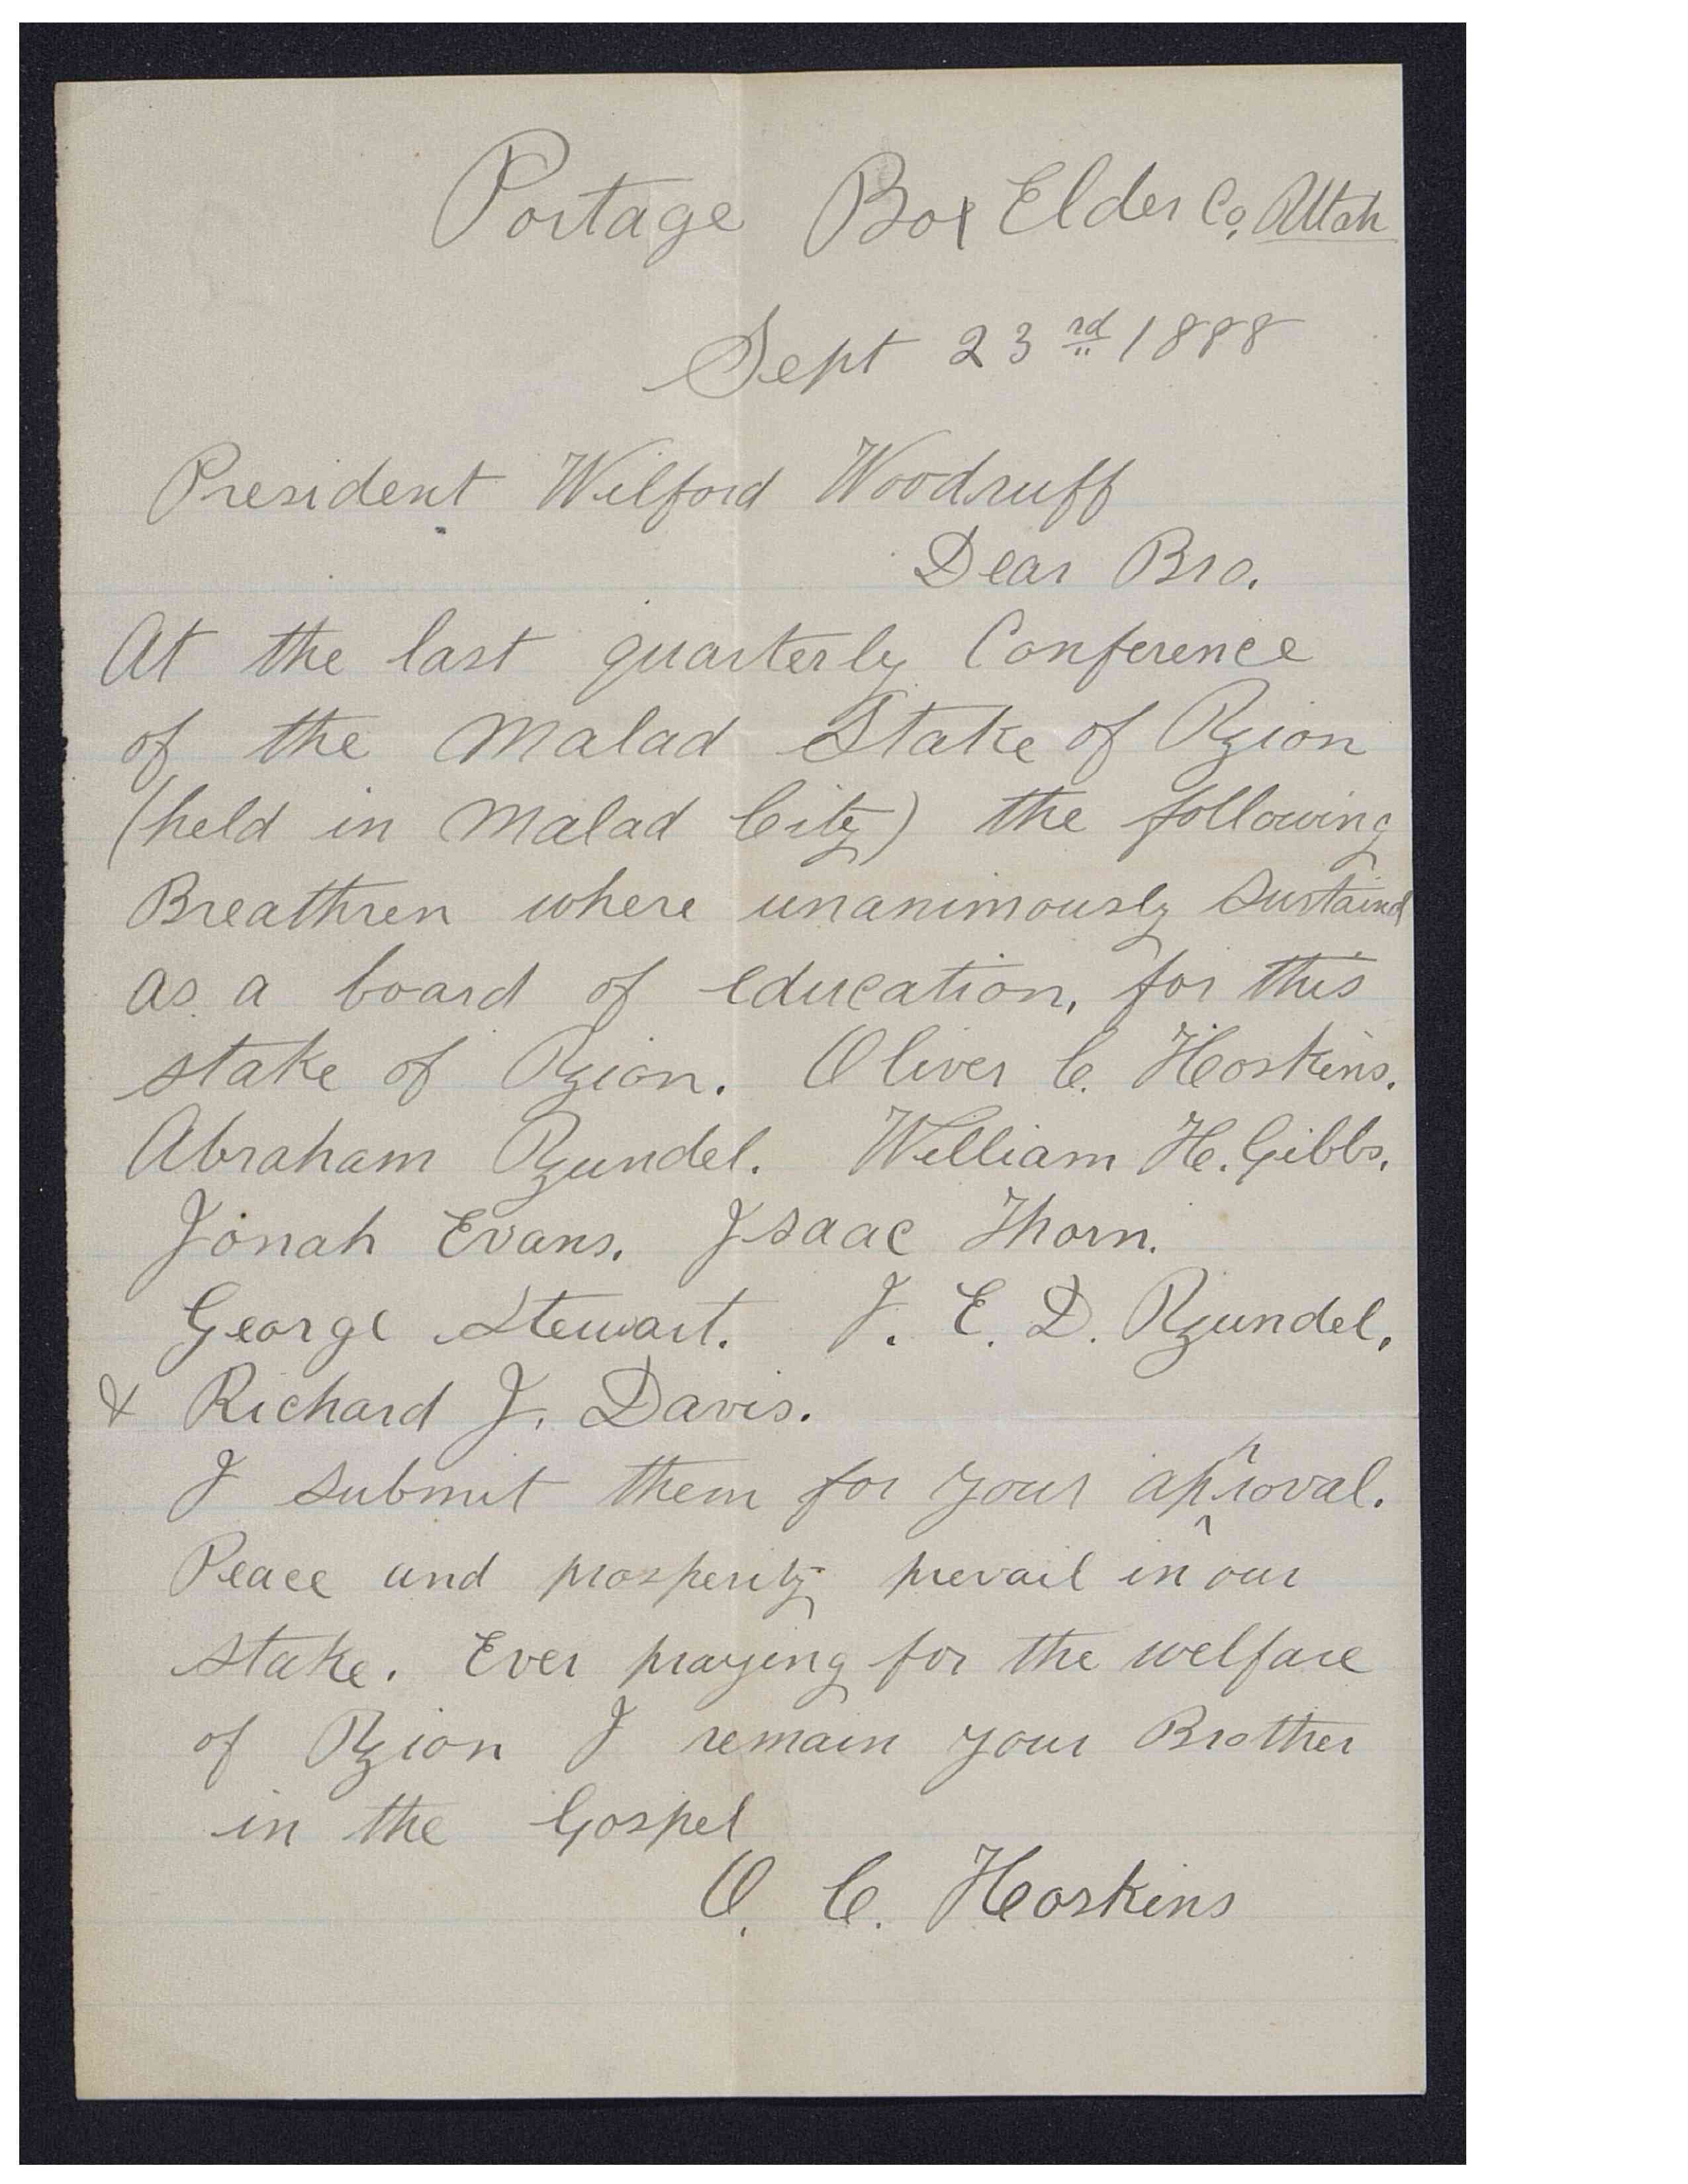 Portage Box Elder Co, Utah
Sept 23rd 1888
President Wilford Woodruff
Dear Bro.
At the last quarterly Conference
of the Malad Stake of Zion
(held in Malad City) the following
Breathren where unanimously sustaind
as a board of education, for this
stake of Zion. Oliver C. Hoskins.
Abraham Zundel. William H. Gibbs.
Jonah Evans. Isaac Thorn.
George Stewart. I. E. D. Zundel,
& Richard J. Davis.
I submit them for your approval.
Peace and prosperity prevail in our
stake. Ever praying for the welfare
of Zion I remain your Brother
in the Gospel
O. C. Hoskins